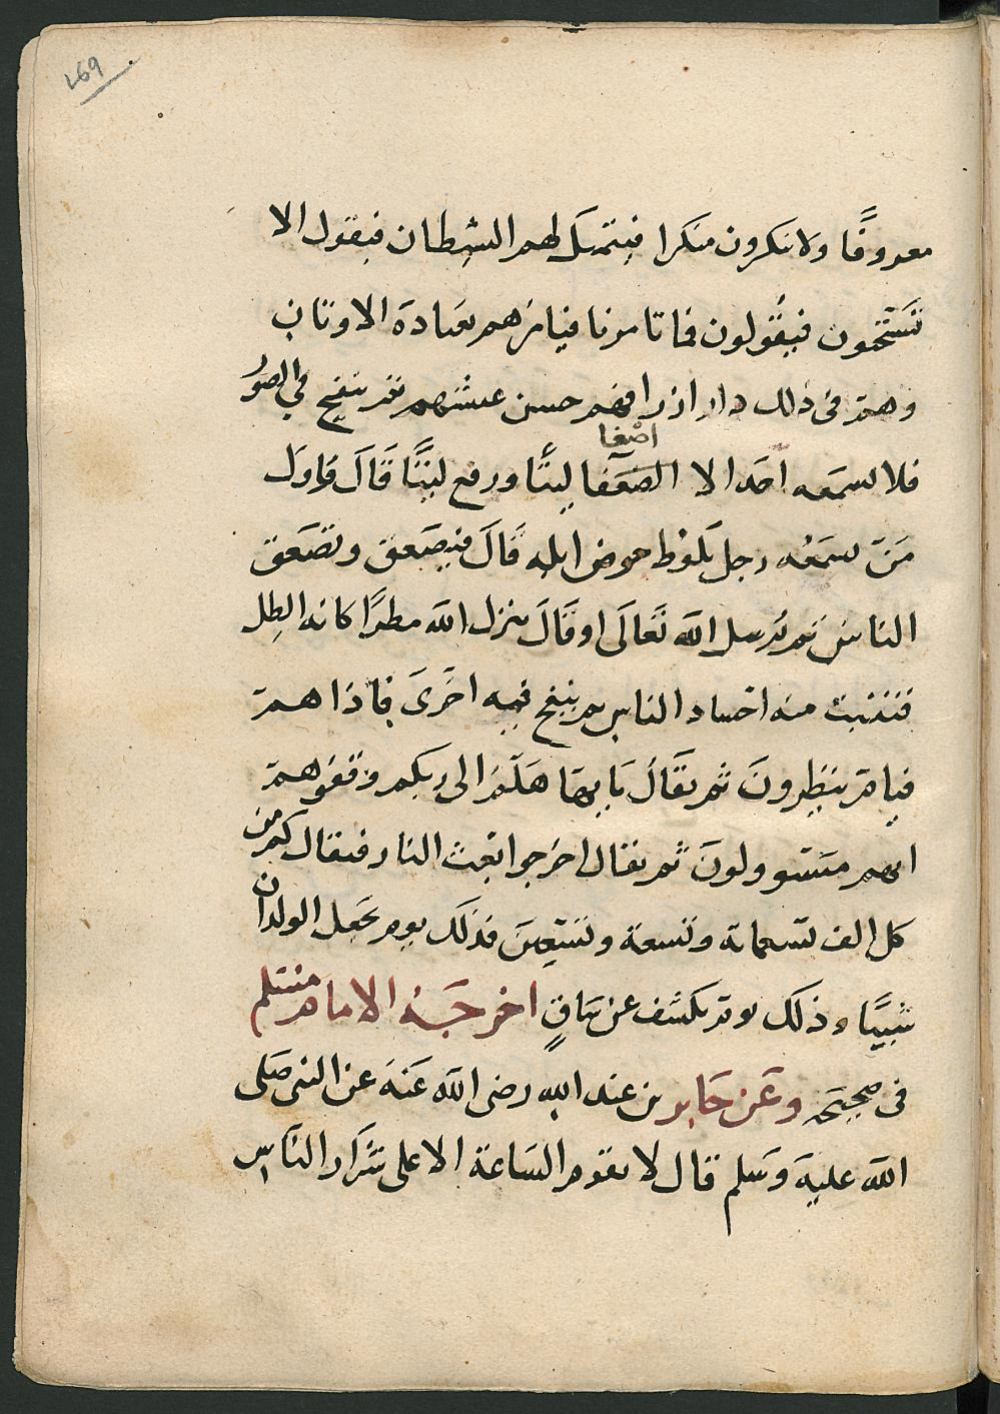 169
معروفًا ولا ينكرون منكرا فيتمثل لهم الشيطان فيقول الا
تستحيون فيقُولون فما تامرنا فيامرهم بعبادة الاوثان
وهم في ذلك دار ارزاقهم حسن عيشهم ثم ينفخ في الصور
اصغا
فلا يسمعه احد الا اصغا ليتًا ورفع ليتًا قَالَ واول
مَنْ يسمعُه رجل يَلوُط حوض ابله قَالَ فيصعق وتصعق
الناس ثم يُرسل الله تَعَالَى او قَالَ ينزل الله مطرًا كانه الطل
فتنبت منه اجساد الناس ثم ينفخ فيه اخرى فاذا هم
قيام ينظرونَ ثم يقَال يا ايها هَلُمّ الى ربكم وقفوهم
انهم مسئوولونَ ثم يقال اخرجوا بَعْث النار فيقال كم من
كل الف تسعماية وتسعة وتسعين فذلك يوم يجعل الولدان
شيبًا وذلك يوم يكشف عن سَاقٍ اخرجَهُ الامام مسلم
في صحيحه وعَن جَابر بن عبد الله رضي الله عَنهَ عن النبي صَلى
الله عليه وَسَلم قال لا تقوم السَاعة الا على شرَار النَاس